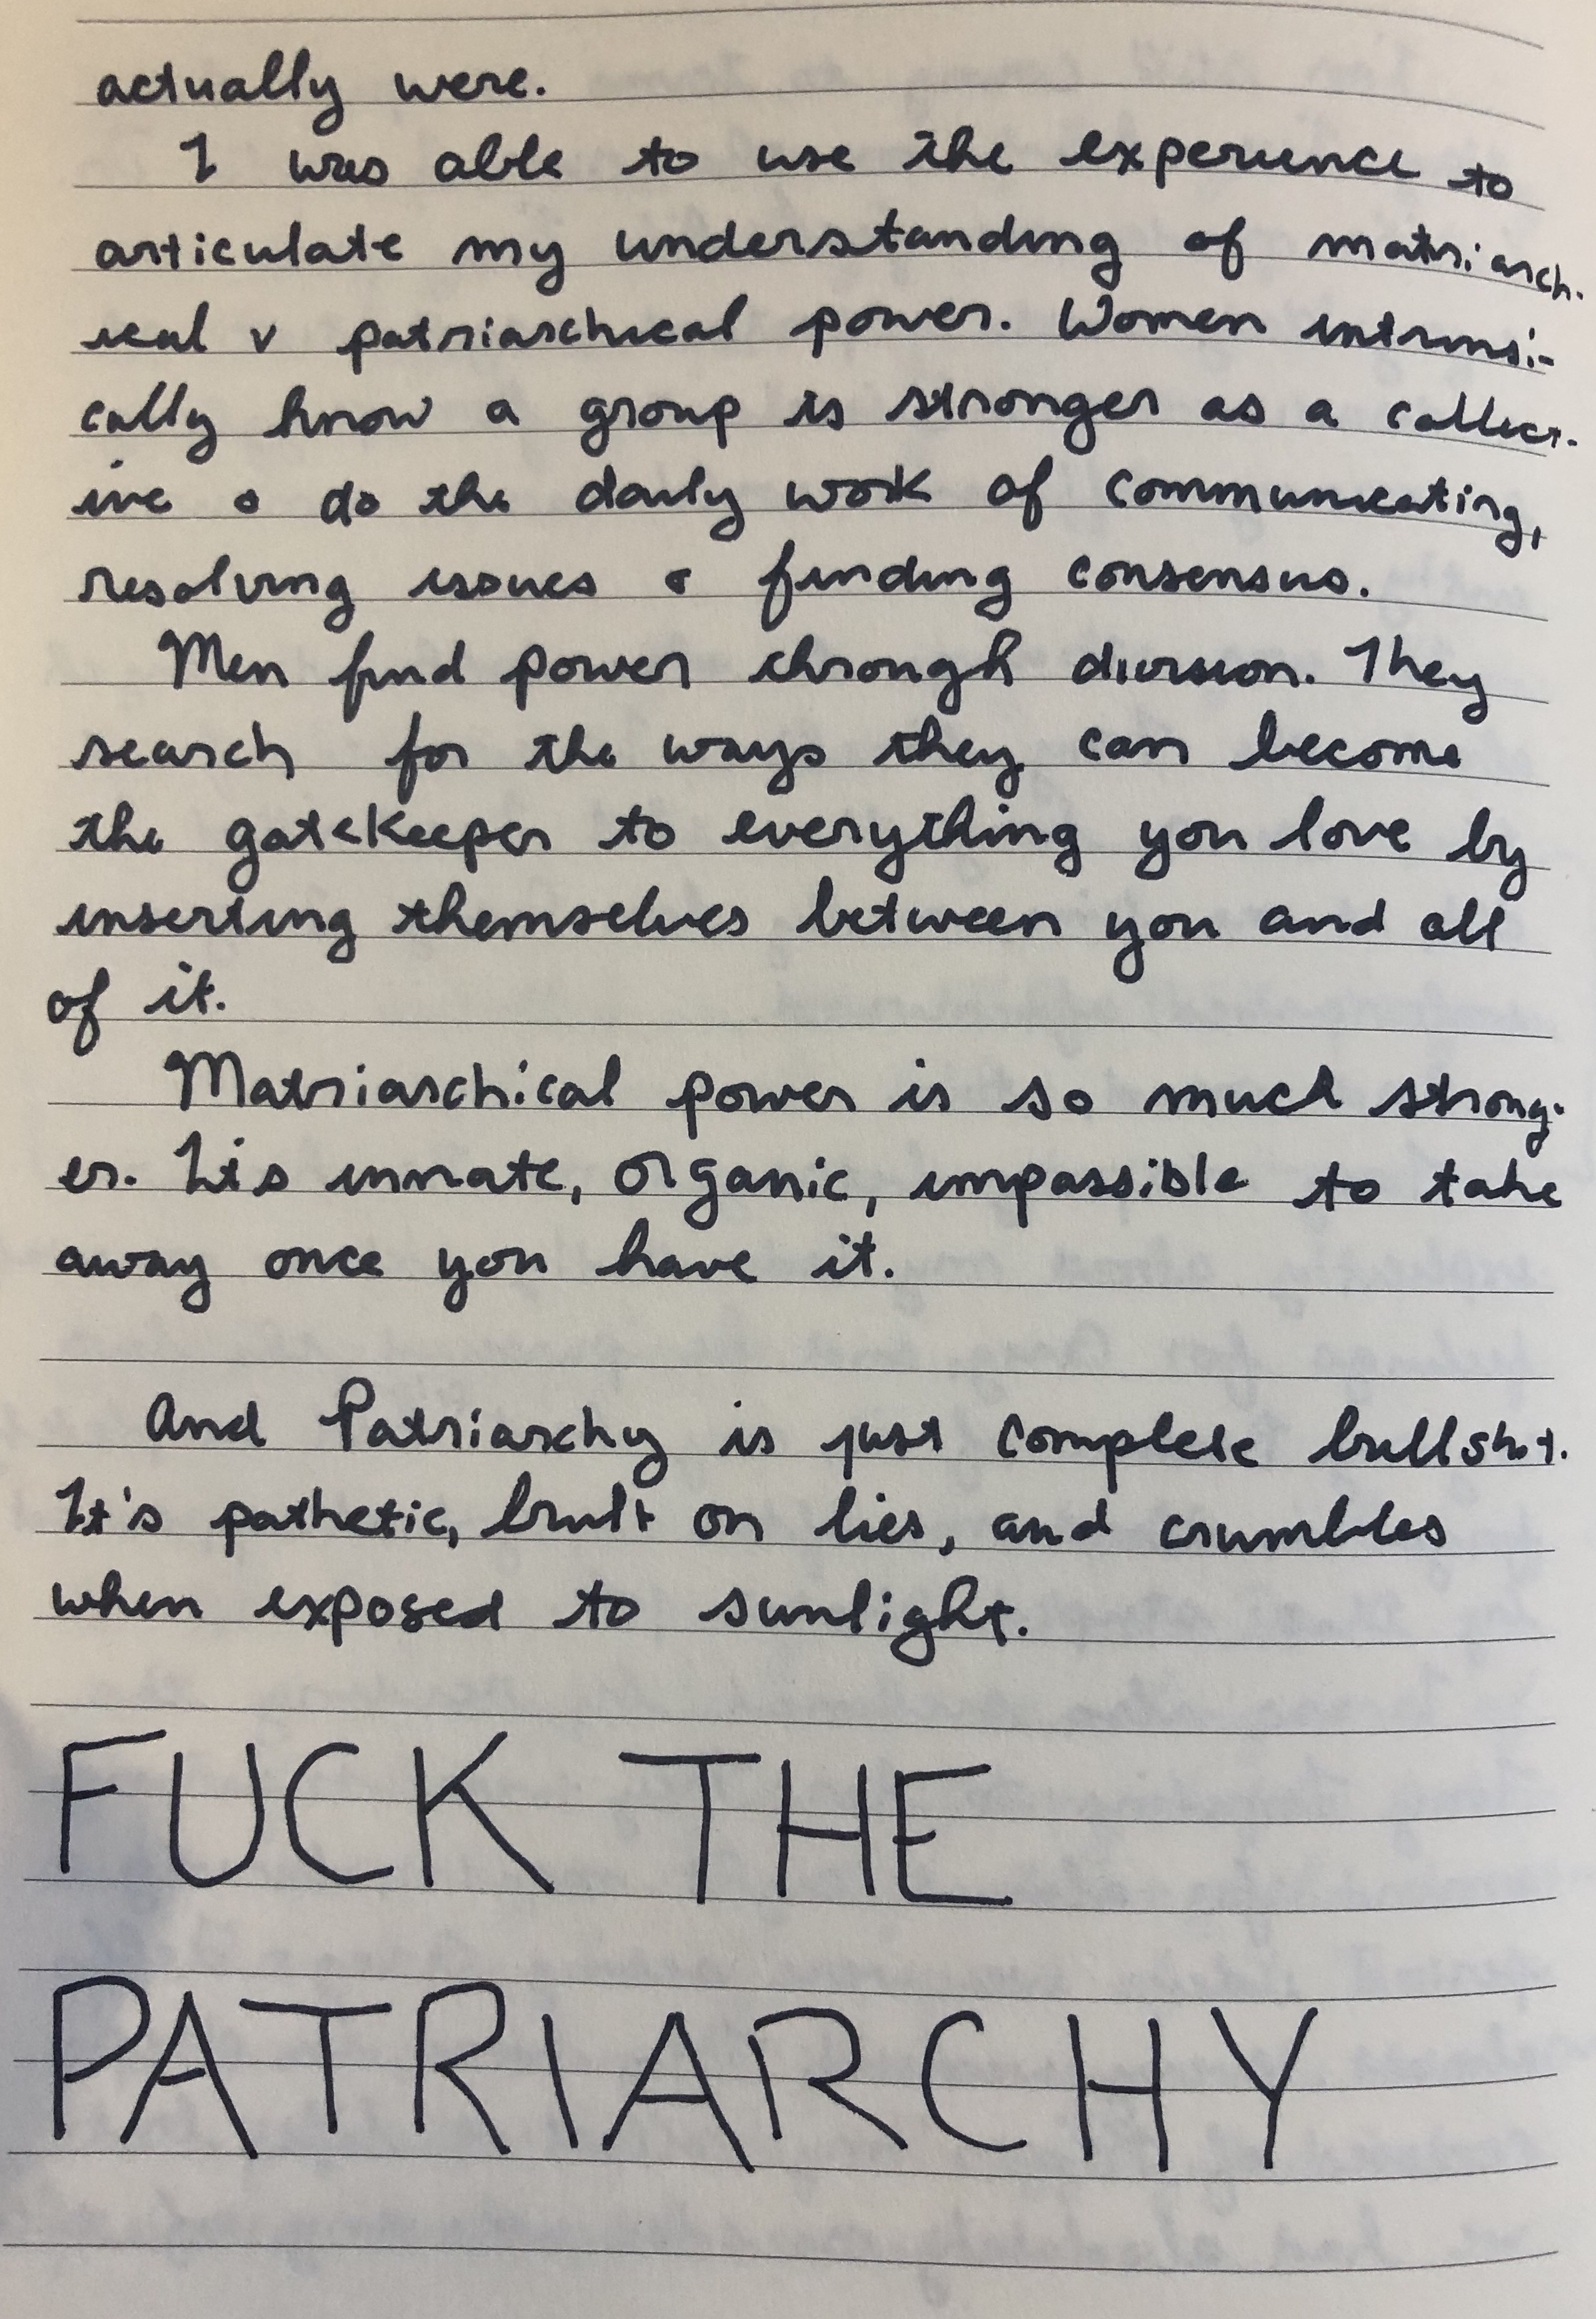 actually were.
I was able to use the experience to
articulate my understanding of matriarch-
ical v patriarchical power. Women intrinsi-
cally know a group is stronger as a collect-
ive & do the daily work of communicating,
resolving issues & finding consensus.
Men find power through division. They
search for the ways they can become
the gatekeeper to everything you love by
inserting themselves between you and all
of it.
Matriarchical power is so much strong-
er. It's innate, organic, impossible to take
away once you have it.
And Patriarchy is just complete bullshit.
It's pathetic, built on lies, and crumbles
when exposed to sunlight.
FUCK THE
PATRIARCHY